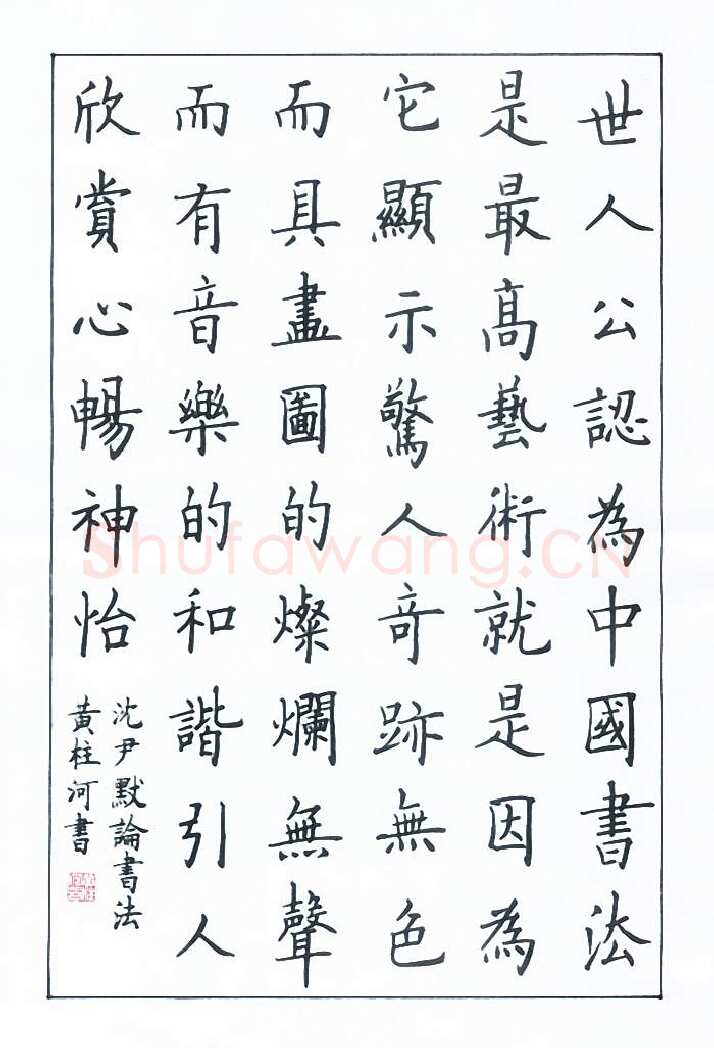 世人公認為中國書法
是最高藝術就是因為
它顯示驚人奇跡無色
而具畫圖的燦爛無聲
而有音樂的和諧引人
欣賞心暢神怡
沈尹默論書法
黃柱河書
Shufawang.CN